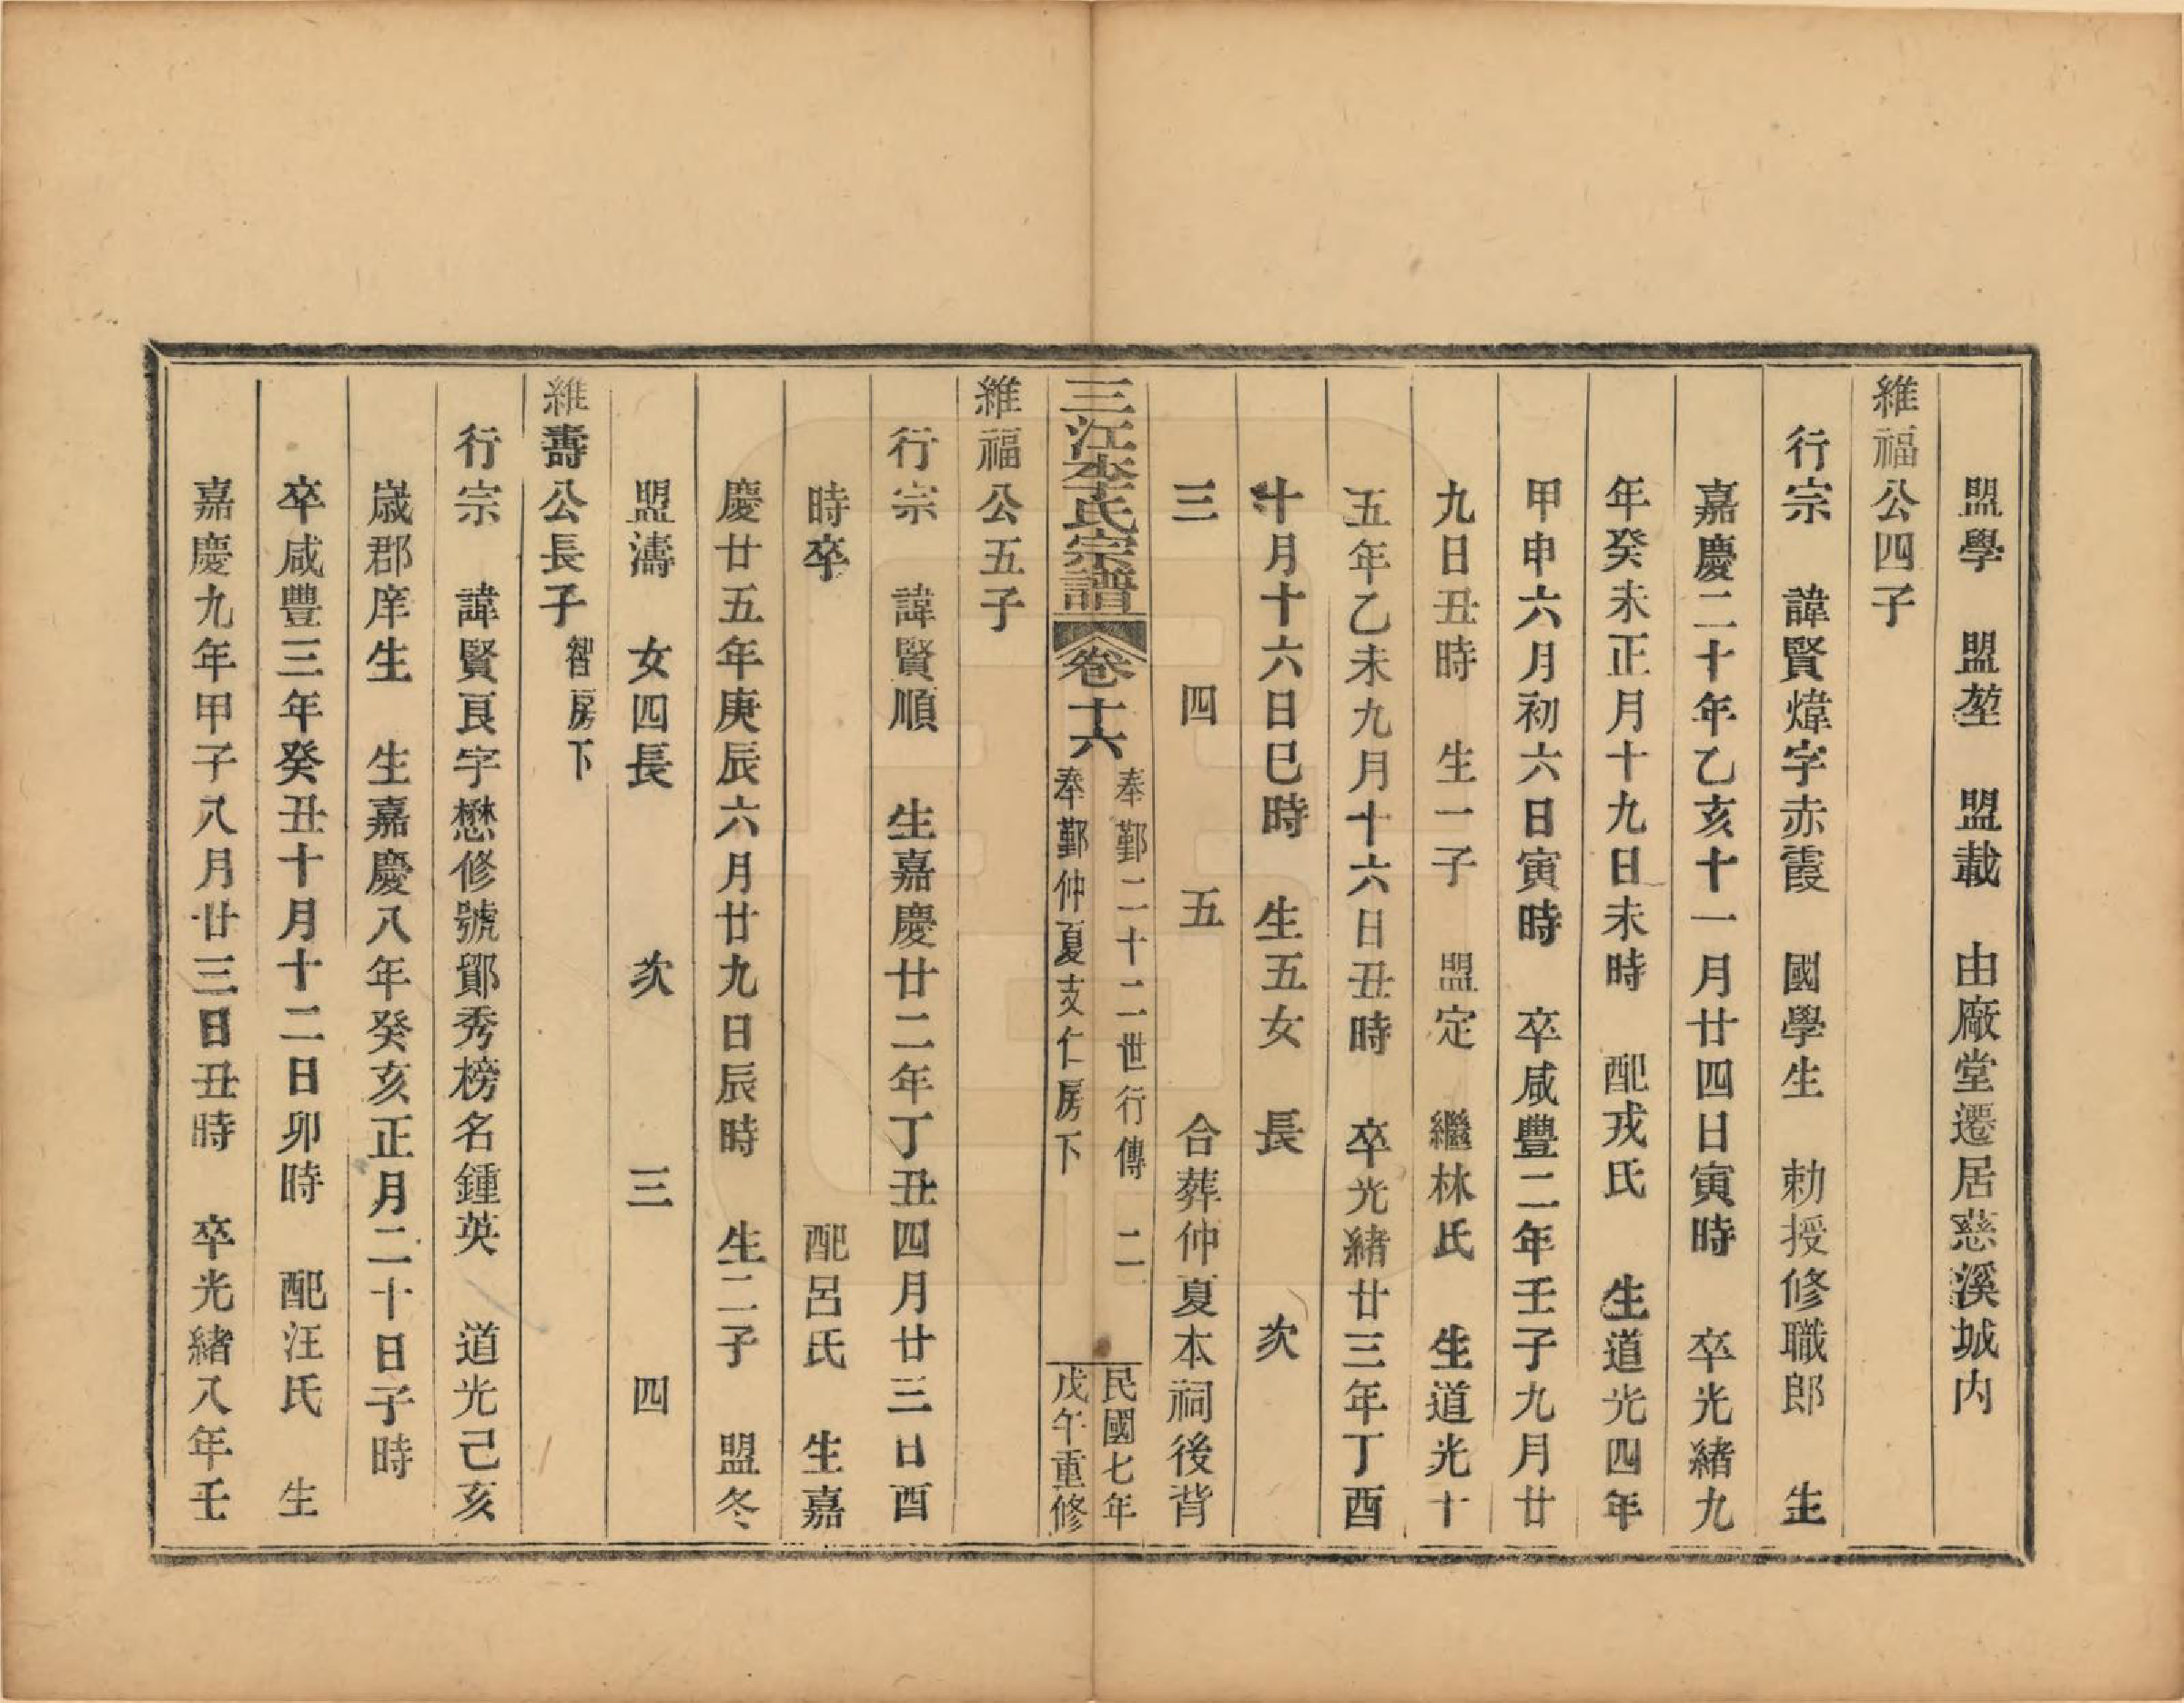 盟學　盟堃　盟載　由廠堂遷居慈溪城内
維福公四子
行宗　諱賢煒字赤霞　國學生　勅授修職郎　生
嘉慶二十年乙亥十一月廿四日寅時　卒光緒九
年癸未正月十九日未時　配戎氏　生道光四年
甲申六月初六日寅時　卒咸豐二年壬子九月廿
九日丑時　生一子　盟定　繼林氏　生道光十
五年乙未九月十六日丑時　卒光緒廿三年丁酉
十月十六日巳時　生五女　長　　　次
三　　　四　　　五　　　合葬仲夏本祠後背
三江李氏宗譜　卷十六　奉鄞二十二世行傳　二
奉鄞仲夏支仁房下
民國七年
戊午重修
維福公五子
行宗　諱賢順　生嘉慶廿二年丁丑四月廿三日酉
時卒　　　配呂氏　生嘉
慶廿五年庚辰六月廿九日辰時　生二子　盟冬
盟濤　女四長　　　次　　　三　　　四
維壽公長子　智房下
行宗　諱賢良字懋修號鄖秀榜名鍾英　道光己亥
歲郡庠生　生嘉慶八年癸亥正月二十日子時
卒咸豐三年癸丑十月十二日卯時　配汪氏　生
嘉慶九年甲子八月廿三日丑時　卒光緒八年壬